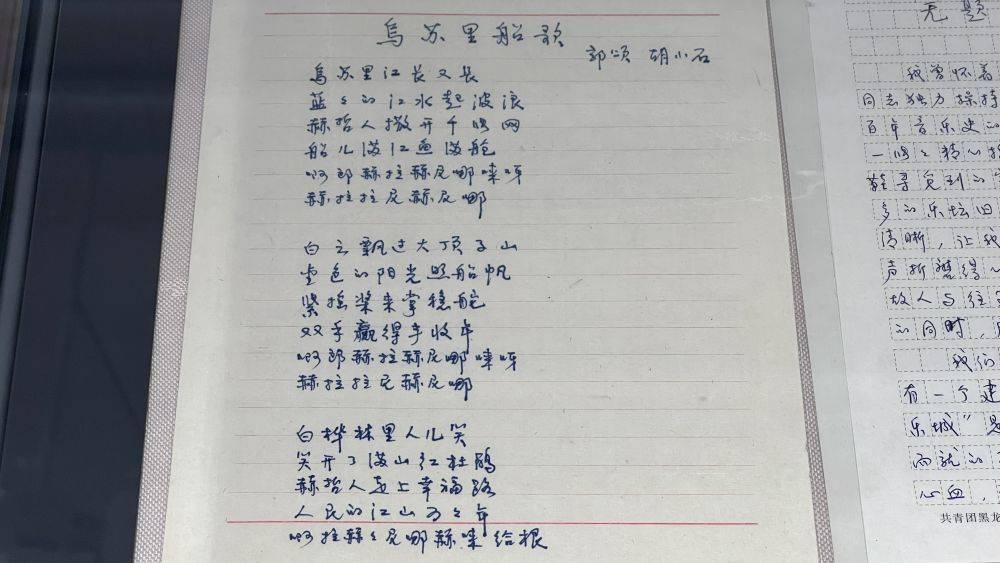 乌苏里船歌
郭颂 胡小石
乌苏里江长又长
蓝々的江水起波浪
赫哲人撒开千张网
船儿满江鱼满舱
啊郎赫拉赫尼哪嗦呀
赫拉拉尼赫尼哪
白云飘过大顶子山
金色的阳光照船帆
紧摇桨来掌稳舵
双手赢得丰收年
啊郎赫拉赫尼哪嗦呀
赫拉拉尼赫尼哪
白桦林里人儿笑
笑开了满山红杜鹃
赫哲人走上幸福路
人民的江山万々年
啊拉赫々尼哪赫嗦给根
无题
我曾怀着
同志独力操持
百年音乐史的
一张々精心
鞋寻觅到的
多的乐坛旧
清晰，让我
声折
故人与往
的同时，
我们
有一个建
乐城”是
而就的
心血，
共青团黑龙